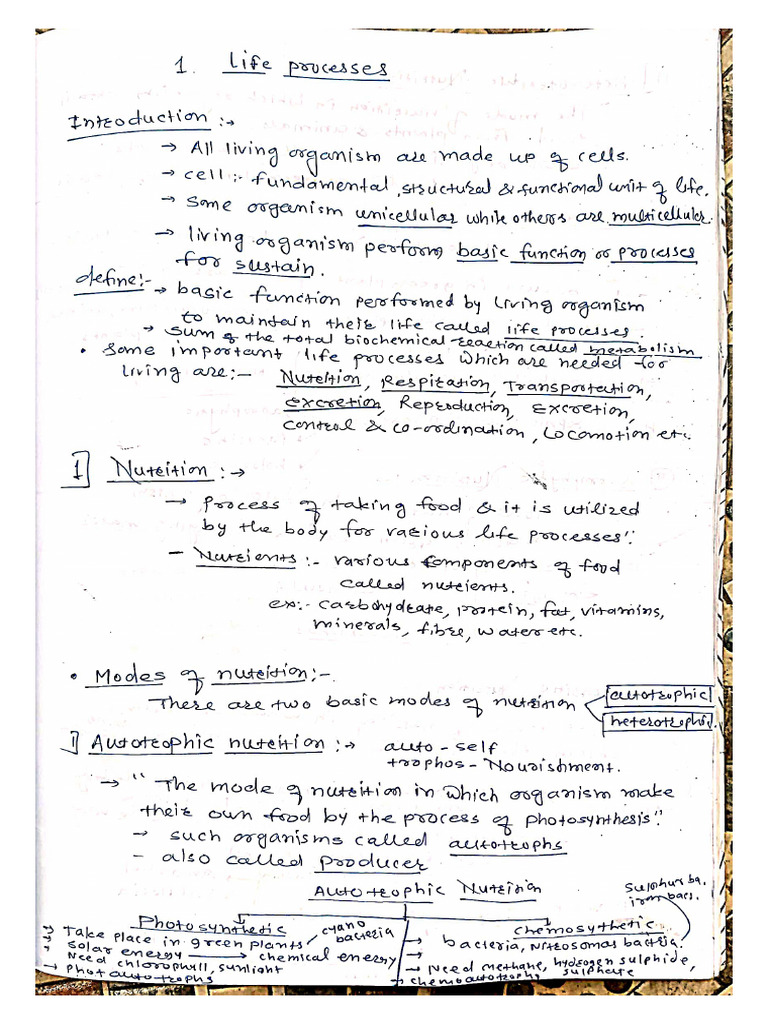 1. Life processes
Introduction :→
→ All living organism are made up of cells.
→ cell :- fundamental, structural & functional unit of life.
→ Some organism unicellular while others are multicellular.
→ living organism perform basic function or processes
for sustain.
define:-
→ basic function performed by living organism
to maintain their life called life processes.
→ sum of the total biochemical reaction called metabolism
• Some important life processes which are needed for
living are:- Nutrition, Respiration, Transportation,
Excretion, Reproduction, Excretion,
Control & co-ordination, Locomotion etc.
I] Nutrition :→
→ Process of taking food & it is utilized
by the body for various life processes".
- Nutrients :- various components of food
called nutrients.
ex:- carbohydrate, protein, fat, vitamins,
minerals, fibre, water etc.
• Modes of nutrition:-
There are two basic modes of nutrition
autotrophic
heterotrophic
1] Autotrophic nutrition :→ auto - self
trophos - Nourishment.
→ "The mode of nutrition in which organism make
their own food by the process of photosynthesis".
→ such organisms called autotrophs
- also called producer
Autotrophic Nutrition
Sulphur ba.
iron bac.
Photosynthetic
→ Take place in green plants / cyano
bacteria
→ solar energy → chemical energy
→ Need chlorophyll, sunlight
→ photoautotrophs
Chemosythetic
→ bacteria, Nitrosomas bactria.
→ Need methane, hydrogen sulphide,
sulphate
→ chemoautotrophs